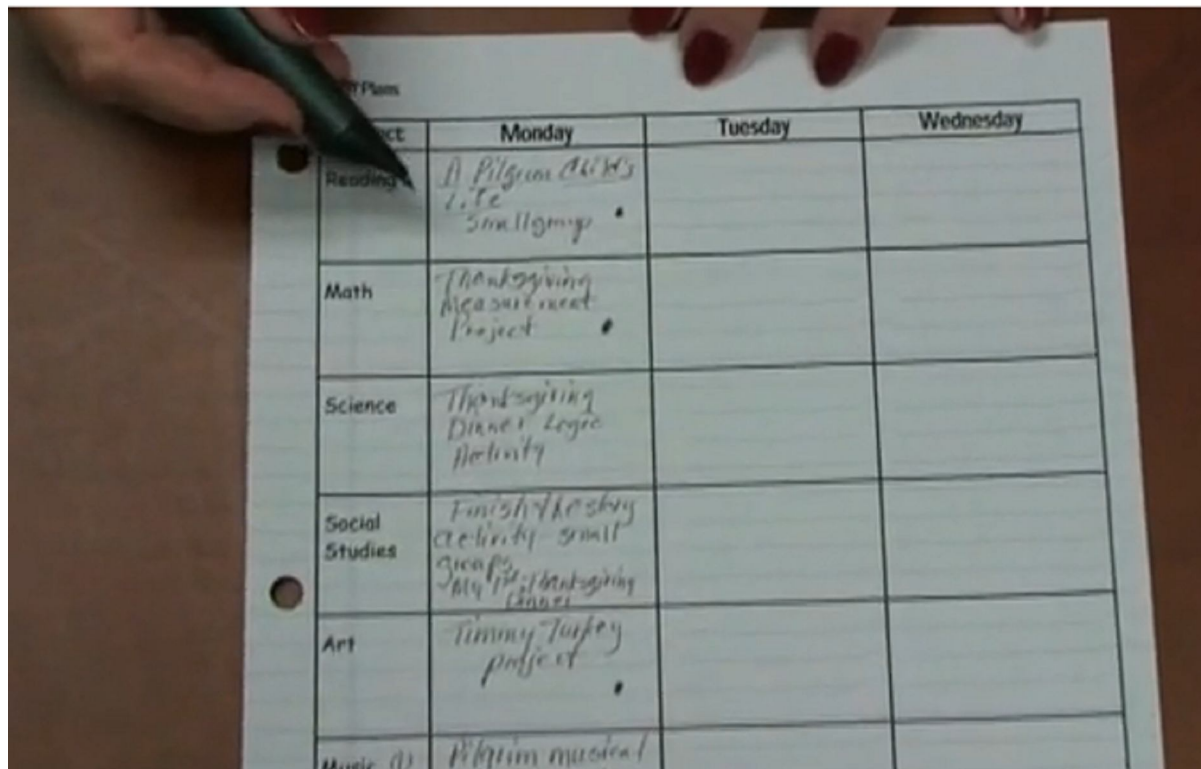 Plans
Monday
Tuesday
Wednesday
Reading
A Pilgrim Child's
Life
Small group
Math
Thanksgiving
Measurement
Project
Science
Thanksgiving
Dinner Logic
Activity
Social
Studies
Finish the story
activity small
groups
My 1st Thanksgiving
Dinner
Art
Timmy Turkey
project
Music
Pilgrim musical